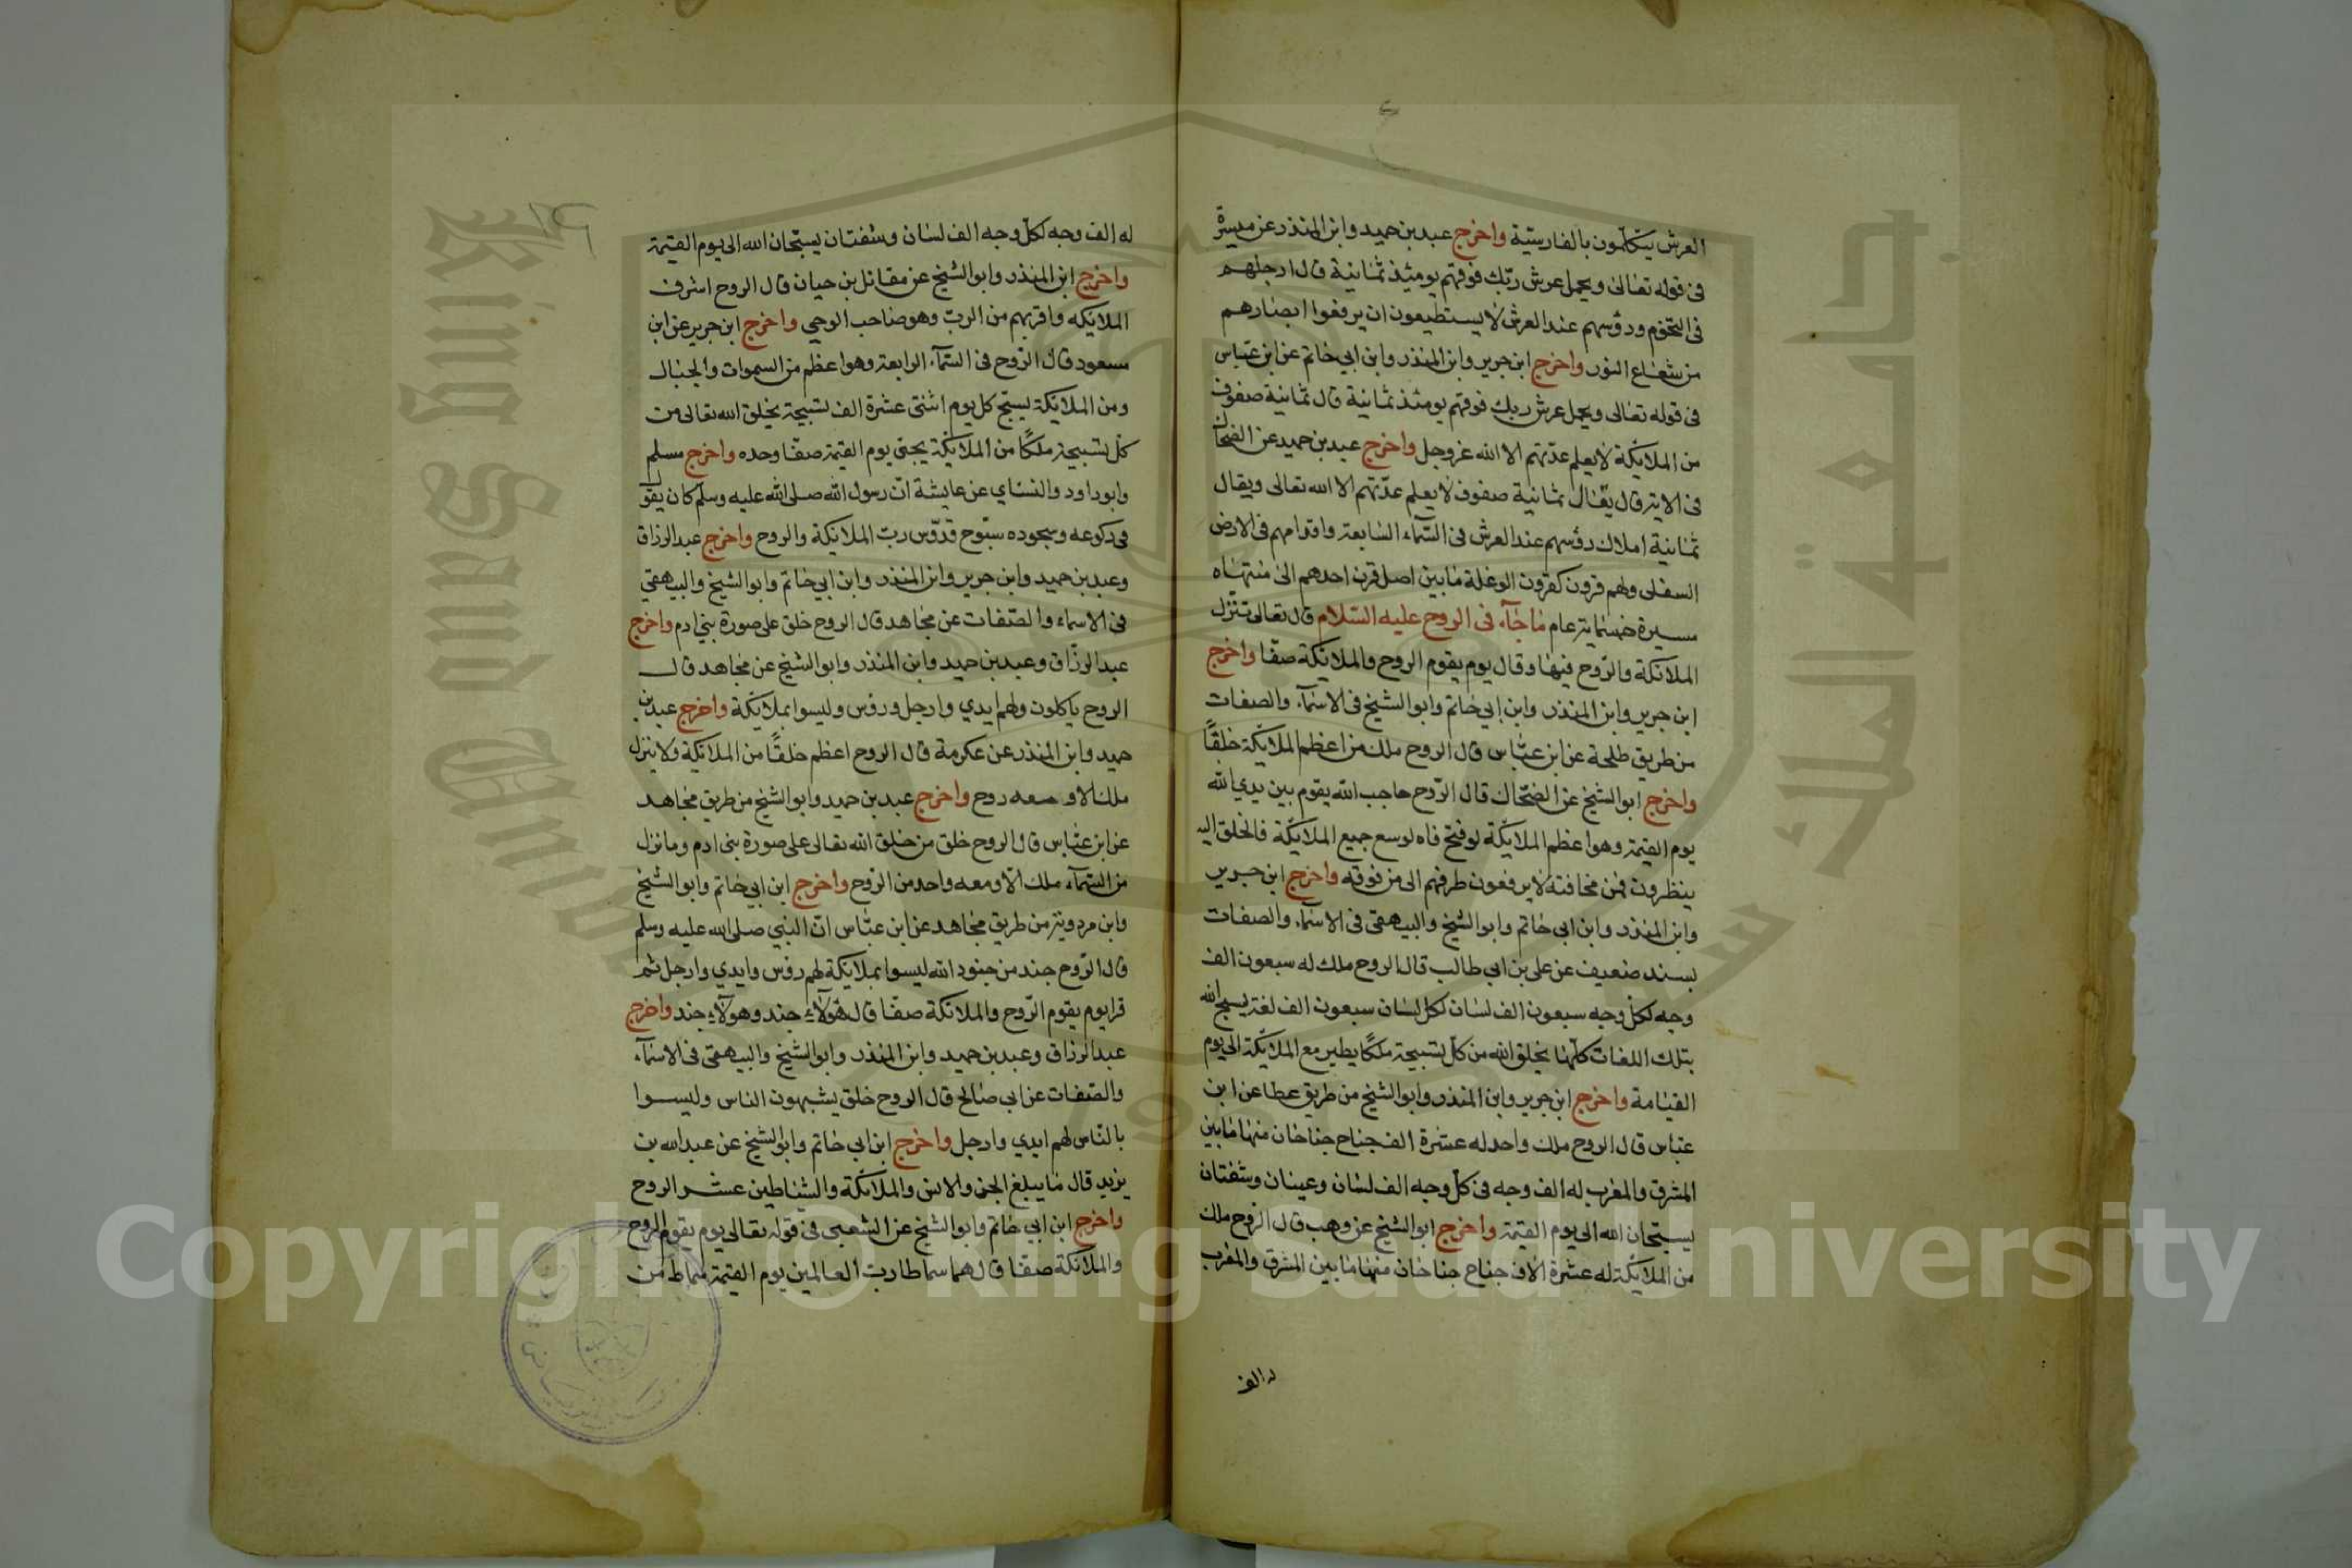 العرش يتكلمون بالفارسية واخرج عبد بن حميد وابن المنذر عن ميسرة
فى قوله تعالى ويحمل عرش ربك فوقهم يومئذ ثمانية قال ارجلهم
فى التخوم ورؤسهم عند العرش لا يستطيعون ان يرفعوا ابصارهم
من شعاع النور واخرج ابن جرير وابن المنذر وابن ابي حاتم عن ابن عباس
فى قوله تعالى ويحمل عرش ربك فوقهم يومئذ ثمانية قال ثمانية صفوف
من الملائكة لا يعلم عدتهم الا الله عز وجل واخرج عبد بن حميد عن الضحاك
فى الاية قال يقال ثمانية صفوف لا يعلم عدتهم الا الله تعالى ويقال
ثمانية املاك رؤسهم عند العرش فى السماء السابعة واقدامهم فى الارض
السفلى ولهم قرون كقرون الوعلة ما بين اصل قرن احدهم الى منتهاه
مسيرة خمسماية عام ما جآء فى الروح عليه السلام قال تعالى تنزل
الملائكة والروح فيها وقال يوم يقوم الروح والملائكة صفا واخرج
ابن جرير وابن المنذر وابن ابي حاتم وابو الشيخ فى الاسمآء والصفات
من طريق طلحة عن ابن عباس قال الروح ملك من اعظم الملائكة خلقًا
واخرج ابو الشيخ عن الضحاك قال الروح حاجب الله يقوم بين يدي الله
يوم القيمة وهو اعظم الملائكة لو فتح فاه لوسع جميع الملائكة فالخلق اليه
ينظرون فمن مخافته لا يرفعون طرفهم الى من فوقه واخرج ابن جرير
وابن المنذر وابن ابى حاتم وابو الشيخ والبيهقى فى الاسمآء والصفات
بسند ضعيف عن على بن ابي طالب قال الروح ملك له سبعون الف
وجه لكل وجه سبعون الف لسان لكل لسان سبعون الف لغة يسبح الله
بتلك اللغات كلها يخلق الله من كل تسبيحة ملكًا يطير مع الملائكة الى يوم
القيامة واخرج ابن جرير وابن المنذر وابو الشيخ من طريق عطا عن ابن
عباس قال الروح ملك واحد له عشرة الف جناح جناحان منها ما بين
المشرق والمغرب له الف وجه فى كل وجه الف لسان وعينان وشفتان
يسبحان الله الى يوم القيمة واخرج ابو الشيخ عن وهب قال الروح ملك
من الملائكة له عشرة الاف جناح جناحان منها ما بين المشرق والمغرب
له الف
له الف وجه لكل وجه الف لسان وشفتان يسبحان الله الى يوم القيمة
واخرج ابن المنذر وابو الشيخ عن مقاتل بن حيان قال الروح اشرف
الملايكه واقربهم من الرب وهو صاحب الوحي واخرج ابن جرير عن ابن
مسعود قال الروح فى السمآء الرابعة وهو اعظم من السموات والجبال
ومن الملائكة يسبح كل يوم اثنتى عشرة الف تسبيحة يخلق الله تعالى من
كل تسبيحة ملكًا من الملائكة يجئ يوم القيمة صفا وحده واخرج مسلم
وابو داود والنساي عن عايشة ان رسول الله صلى الله عليه وسلم كان يقو
فى ركوعه وسجوده سبوح قدوس رب الملائكة والروح واخرج عبد الرزاق
وعبد بن حميد وابن جرير وابن المنذر وابن ابي حاتم وابو الشيخ والبيهقي
فى الاسماء والصفات عن مجاهد قال الروح خلق على صورة بني ادم واخرج
عبد الرزاق وعبد بن حميد وابن المنذر وابو الشيخ عن مجاهد قال
الروح ياكلون ولهم ايدي وارجل ورؤس وليسوا بملائكة واخرج عبد بن
حميد وابن المنذر عن عكرمة قال الروح اعظم خلقًا من الملائكة ولا ينزل
ملك الا ومعه روح واخرج عبد بن حميد وابو الشيخ من طريق مجاهد
عن ابن عباس قال الروح خلق من خلق الله تعالى على صورة بنى ادم وما نزل
من السمآء ملك الا ومعه واحد من الروح واخرج ابن ابي حاتم وابو الشيخ
وابن مردوية من طريق مجاهد عن ابن عباس ان النبي صلى الله عليه وسلم
قال الروح جند من جنود الله ليسوا بملائكة لهم رؤس وايدي وارجل ثم
قرا يوم يقوم الروح والملائكة صفا قال هؤلآء جند وهؤلآء جند واخرج
عبد الرزاق وعبد بن حميد وابن المنذر وابو الشيخ والبيهقى فى الاسمآء
والصفات عن ابى صالح قال الروح خلق يشبهون الناس وليسوا
بالناس لهم ايدي وارجل واخرج ابن ابي حاتم وابو الشيخ عن عبد الله بن
بريد قال ما يبلغ الجن والانس والملائكة والشياطين عشر الروح
واخرج ابن ابي حاتم وابو الشيخ عن الشعبى فى قوله تعالى يوم يقوم الروح
والملائكة صفا قال هما سماطا رب العالمين يوم القيمة سماط من
جامعة الملك سعود
King Saud University
Copyright © King Saud University